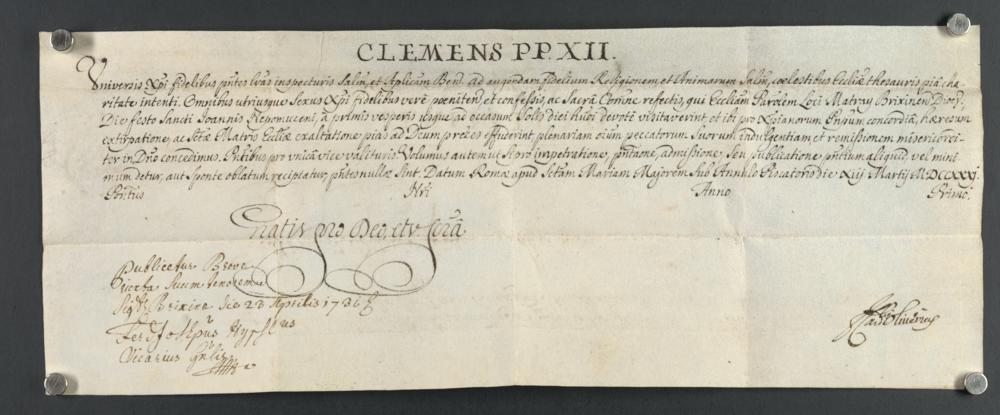 CLEMENS P.P. XII.
Universis Xpi fidelibus pñtes lr̃as inspecturis Salm̃, et Apl̃icam Ben. Ad augendam fidelium Religionem et Animarum Salm̃, coelestibus Eccl̃iæ thesauris piâ cha
ritate intenti. Omnibus utriusque Sexus Xpi fidelibus verè poenitent̃, et confessis, ac Sacrâ Com̃ne refectis, qui Eccl̃iam Paro̅lem Loci Matray Brixinen̅ Dioc̃.
Die festo Sancti Joannis Nepomuceni, à primis vesperis usque ad occasum Solis diei huiõi devotè visitaverint, et ibi pro Xpianorum Pñcipum concordia, hæresum
extirpatione, ac S̃ctæ Matris Eccl̃iæ exaltatione pias ad Deum preces effuderint plenariam oĩum peccatorum Suorum indulgentiam et remissionem misericordi
ter in Dño concedimus. Pñtibus pro unicâ vice valituris. Volumus autem ut si pro impetratione, pñtaõne, admissione, seu publicatione pñtium aliquid, vel mini
mum detur, aut sponte oblatum recipiatur, pñtes nullæ sint. Datum Romæ apud S̃ctam Mariam Majorem Sub Annulo Piscatoris die xiij Martij MDCCXXXJ.
Pon̅tus Nr̃i Anno Primo.
Gratis pro Deo, et Scr̃a
Publicetur Breve
iuxta Suum tenorem
Sig̃t Brixinæ die 23 Aprilis 1736
Ferd Josephus
Vicarius Gñlis